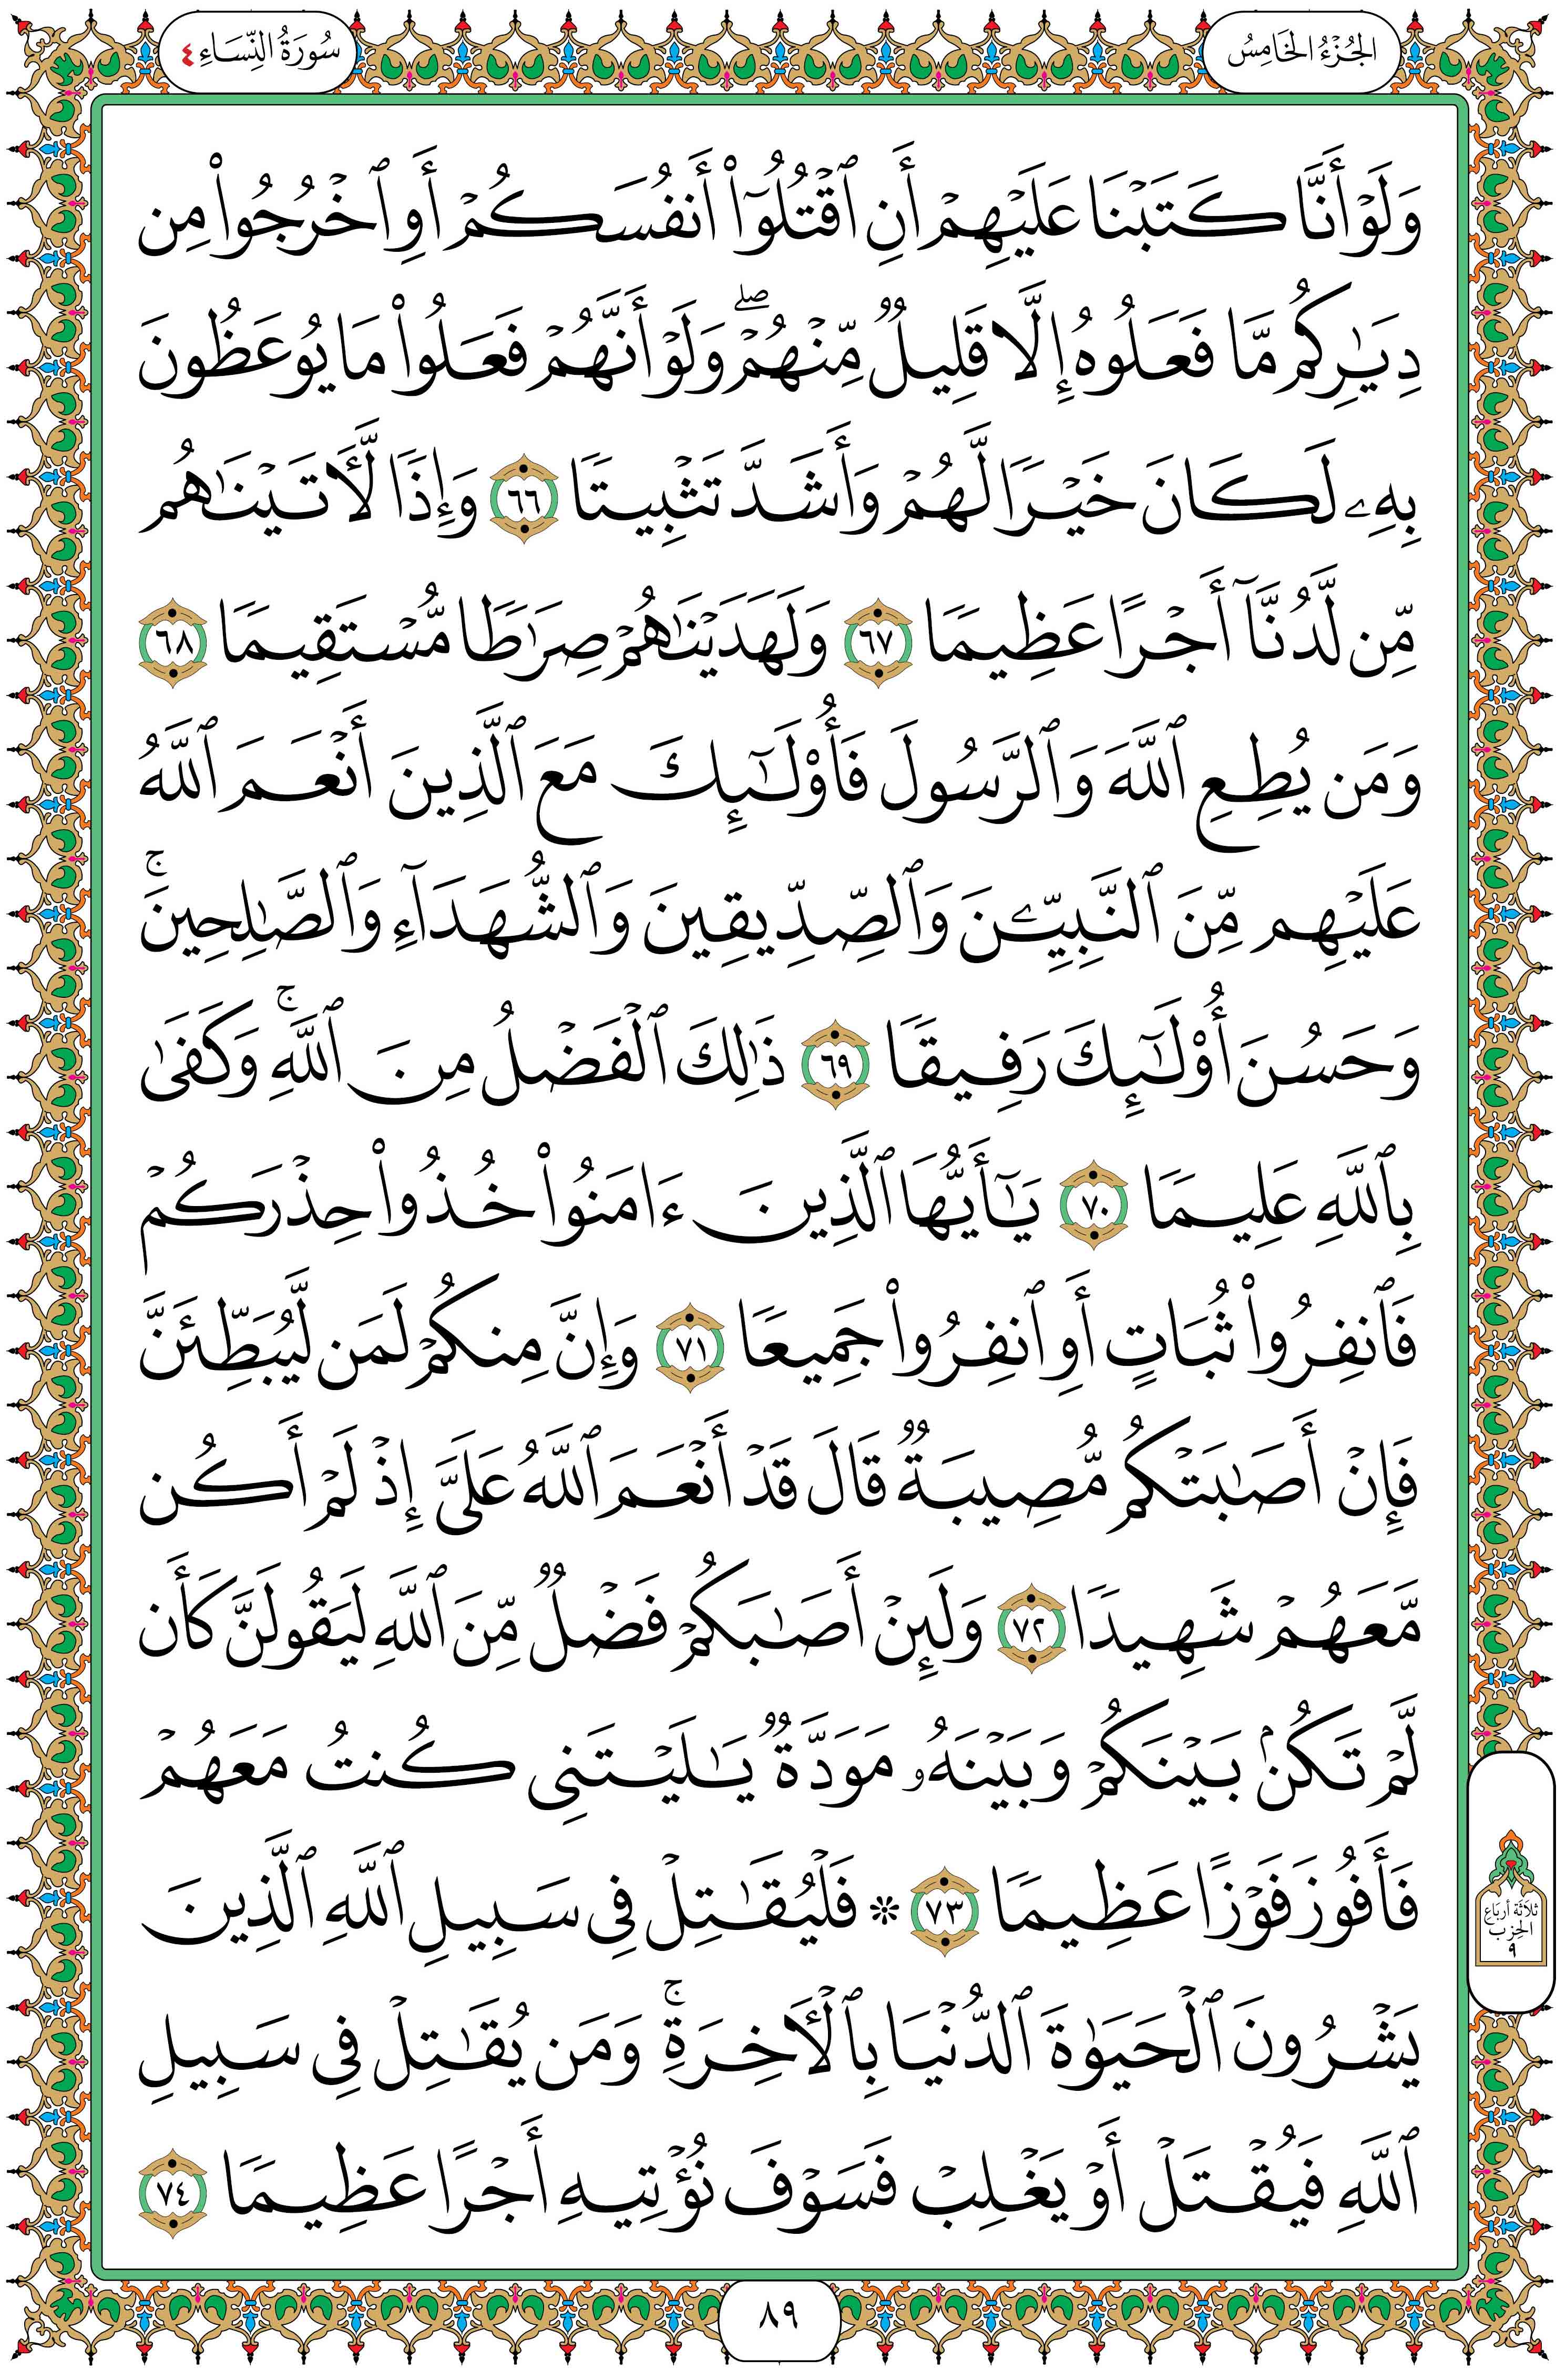 الجُزْءُ الخَامِسُ
سُورَةُ النِّسَاءِ ٤
وَلَوۡ أَنَّا كَتَبۡنَا عَلَيۡهِمۡ أَنِ ٱقۡتُلُوٓاْ أَنفُسَكُمۡ أَوِ ٱخۡرُجُواْ مِن
دِيَٰرِكُم مَّا فَعَلُوهُ إِلَّا قَلِيلٞ مِّنۡهُمۡۖ وَلَوۡ أَنَّهُمۡ فَعَلُواْ مَا يُوعَظُونَ
بِهِۦ لَكَانَ خَيۡرٗا لَّهُمۡ وَأَشَدَّ تَثۡبِيتٗا ٦٦ وَإِذٗا لَّأٓتَيۡنَٰهُم
مِّن لَّدُنَّآ أَجۡرًا عَظِيمٗا ٦٧ وَلَهَدَيۡنَٰهُمۡ صِرَٰطٗا مُّسۡتَقِيمٗا ٦٨
وَمَن يُطِعِ ٱللَّهَ وَٱلرَّسُولَ فَأُوْلَٰٓئِكَ مَعَ ٱلَّذِينَ أَنۡعَمَ ٱللَّهُ
عَلَيۡهِم مِّنَ ٱلنَّبِيِّـۧنَ وَٱلصِّدِّيقِينَ وَٱلشُّهَدَآءِ وَٱلصَّٰلِحِينَۚ
وَحَسُنَ أُوْلَٰٓئِكَ رَفِيقٗا ٦٩ ذَٰلِكَ ٱلۡفَضۡلُ مِنَ ٱللَّهِۚ وَكَفَىٰ
بِٱللَّهِ عَلِيمٗا ٧٠ يَٰٓأَيُّهَا ٱلَّذِينَ ءَامَنُواْ خُذُواْ حِذۡرَكُمۡ
فَٱنفِرُواْ ثُبَاتٍ أَوِ ٱنفِرُواْ جَمِيعٗا ٧١ وَإِنَّ مِنكُمۡ لَمَن لَّيُبَطِّئَنَّ
فَإِنۡ أَصَٰبَتۡكُم مُّصِيبَةٞ قَالَ قَدۡ أَنۡعَمَ ٱللَّهُ عَلَيَّ إِذۡ لَمۡ أَكُن
مَّعَهُمۡ شَهِيدٗا ٧٢ وَلَئِنۡ أَصَٰبَكُمۡ فَضۡلٞ مِّنَ ٱللَّهِ لَيَقُولَنَّ كَأَن
لَّمۡ تَكُنۢ بَيۡنَكُمۡ وَبَيۡنَهُۥ مَوَدَّةٞ يَٰلَيۡتَنِي كُنتُ مَعَهُمۡ
فَأَفُوزَ فَوۡزًا عَظِيمٗا ٧٣ ۞ فَلۡيُقَٰتِلۡ فِي سَبِيلِ ٱللَّهِ ٱلَّذِينَ
يَشۡرُونَ ٱلۡحَيَوٰةَ ٱلدُّنۡيَا بِٱلۡأٓخِرَةِۚ وَمَن يُقَٰتِلۡ فِي سَبِيلِ
ٱللَّهِ فَيُقۡتَلۡ أَوۡ يَغۡلِبۡ فَسَوۡفَ نُؤۡتِيهِ أَجۡرًا عَظِيمٗا ٧٤
ثَلَاثَة أَرْبَاع
الحِزب
٩
٨٩